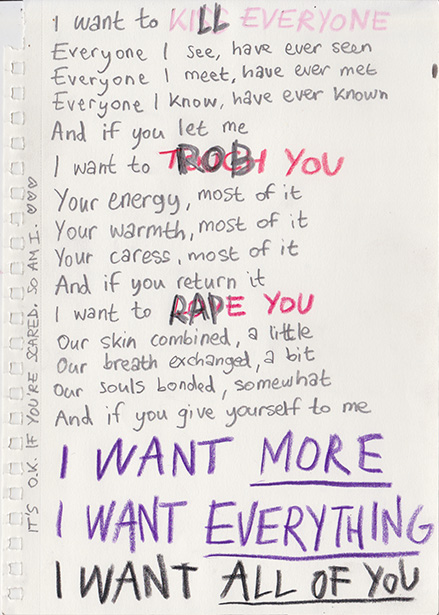 I want to KILL EVERYONE
Everyone I see, have ever seen
Everyone I meet, have ever met
Everyone I know, have ever known
And if you let me
I want to ROB YOU
Your energy, most of it
Your warmth, most of it
Your caress, most of it
And if you return it
I want to RAPE YOU
Our skin combined, a little
Our breath exchanged, a bit
Our souls bonded, somewhat
And if you give yourself to me
I WANT MORE
I WANT EVERYTHING
I WANT ALL OF YOU
IT'S O.K. IF YOU'RE SCARED. SO AM I. ♡♡♡